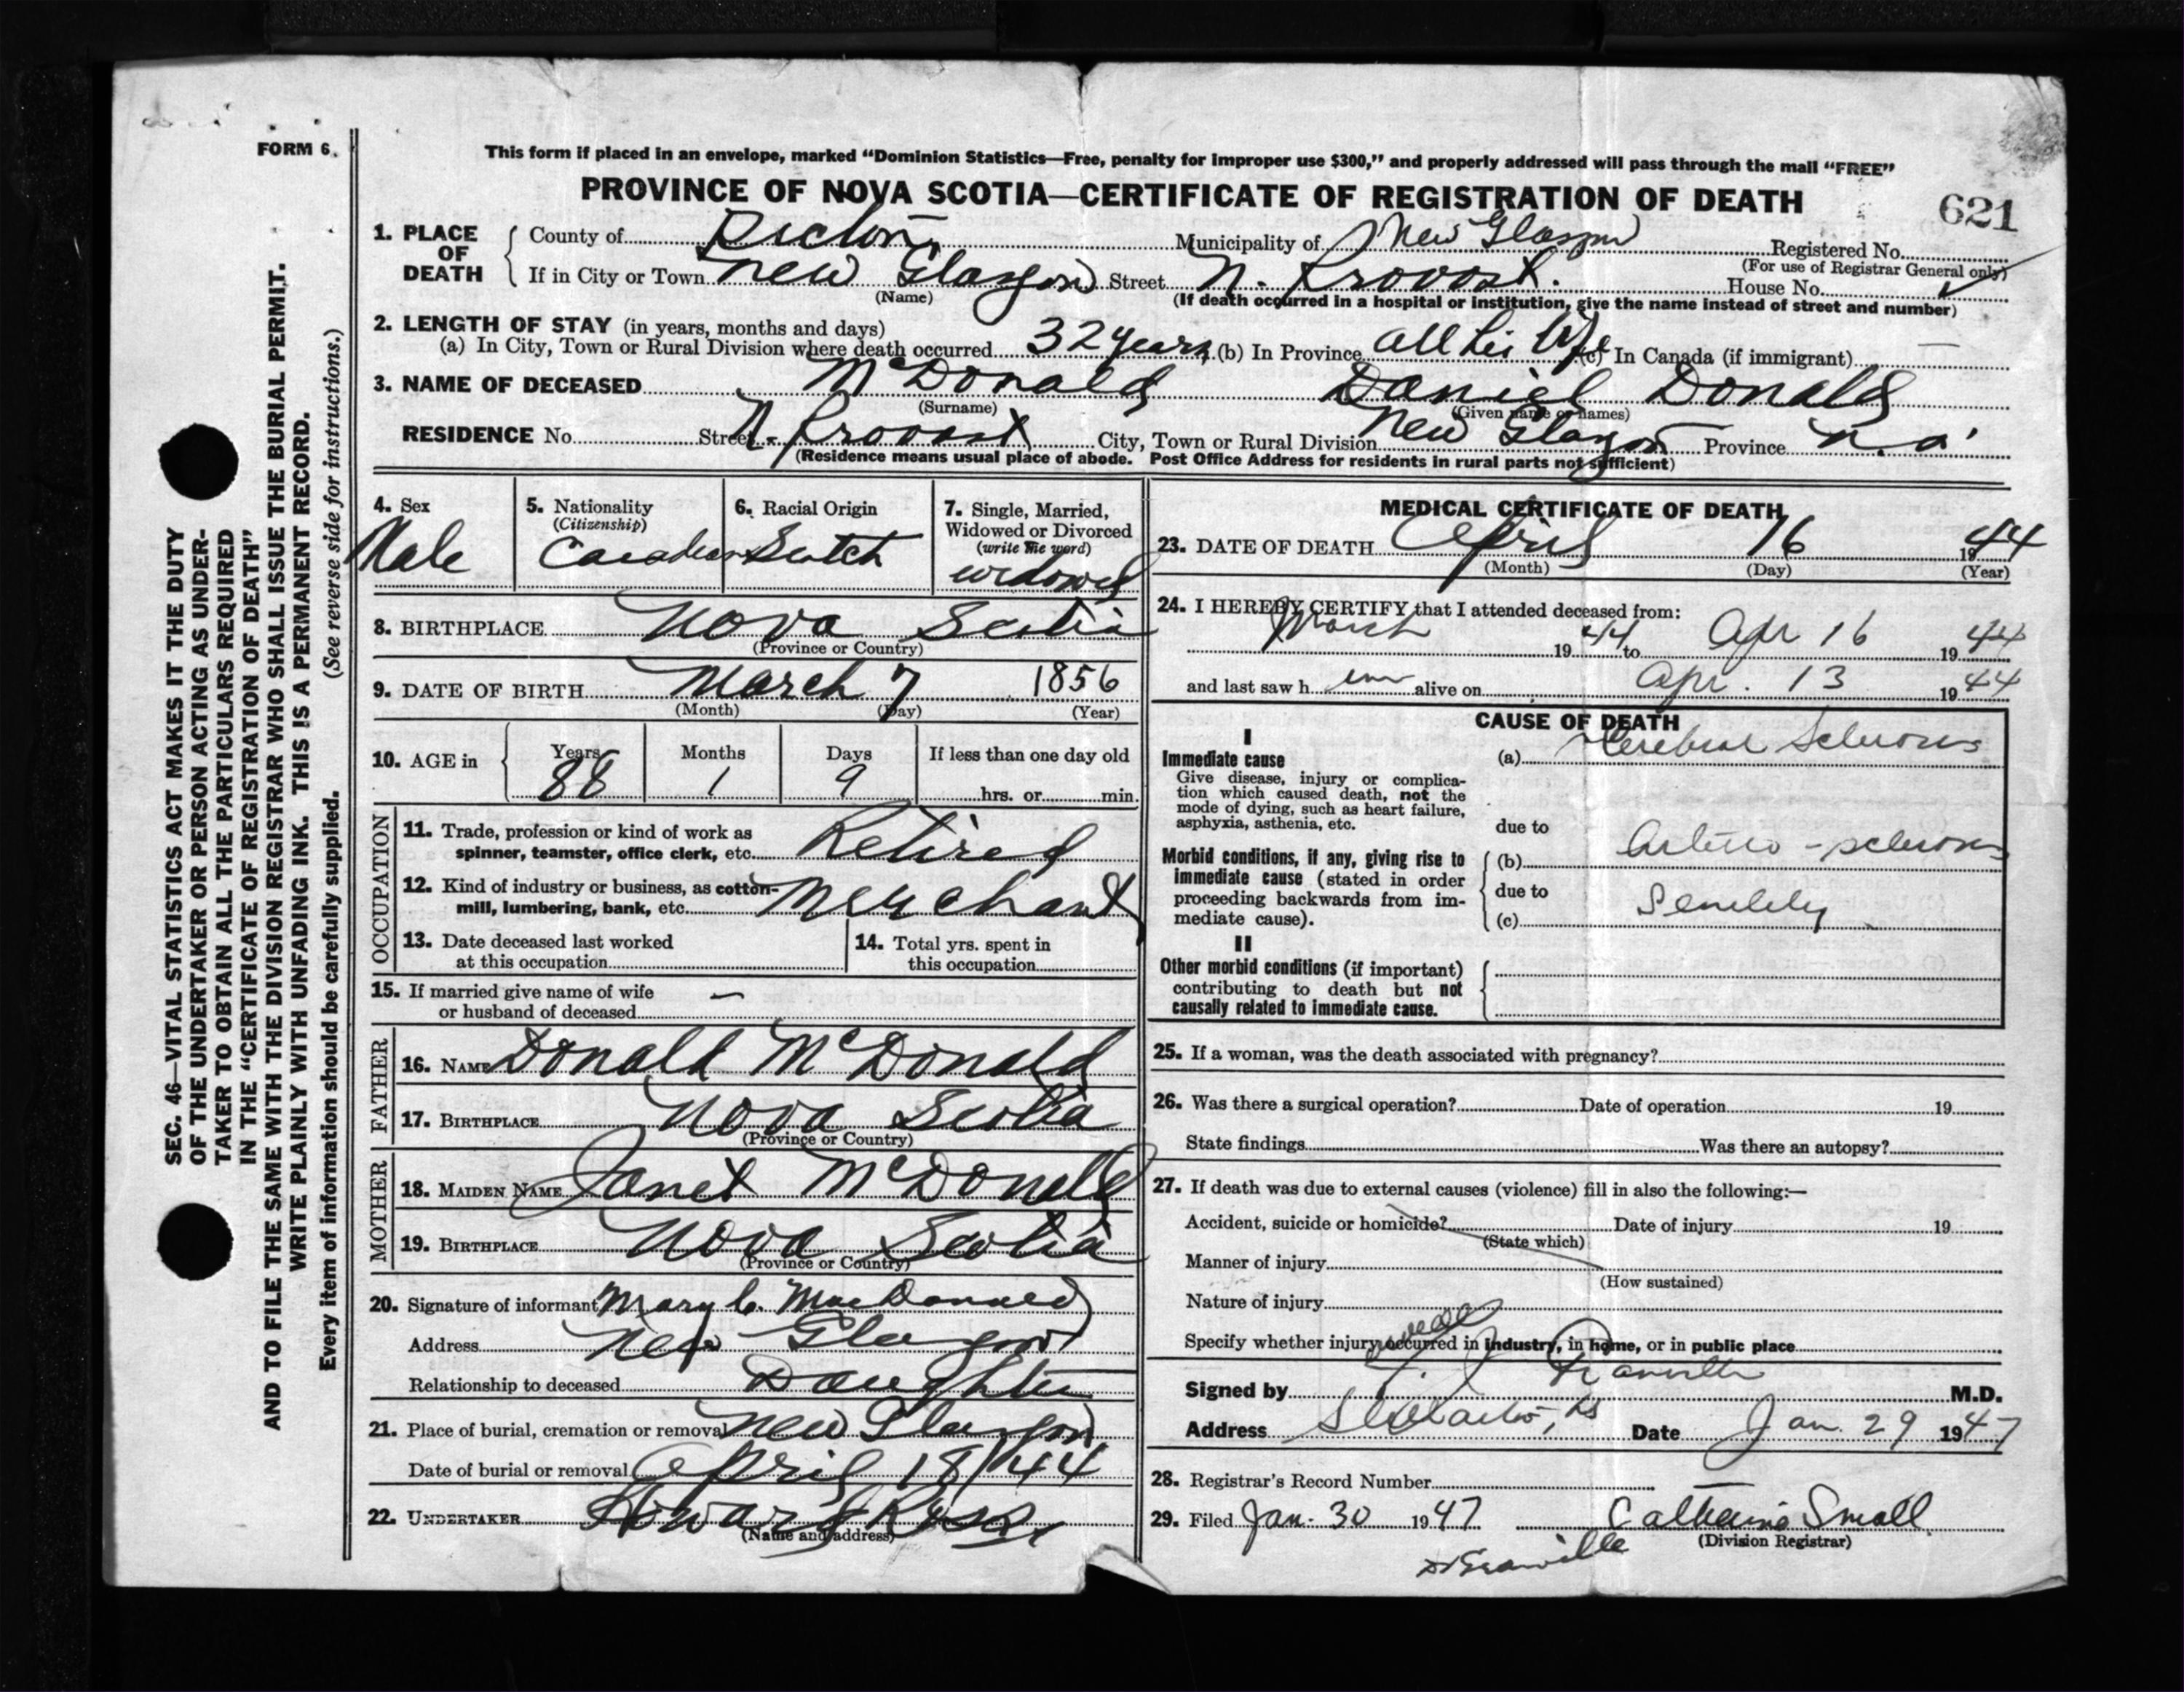 FORM 6.
This form if placed in an envelope, marked “Dominion Statistics—Free, penalty for improper use $300,” and properly addressed will pass through the mail “FREE”
PROVINCE OF NOVA SCOTIA—CERTIFICATE OF REGISTRATION OF DEATH
621
1. PLACE OF DEATH
County of Pictou Municipality of New Glasgow Registered No.
(For use of Registrar General only)
If in City or Town New Glasgow Street N. Provost. House No.
(Name) (If death occurred in a hospital or institution, give the name instead of street and number)
2. LENGTH OF STAY (in years, months and days)
(a) In City, Town or Rural Division where death occurred 32 years (b) In Province all his life (c) In Canada (if immigrant) —
3. NAME OF DECEASED McDonald Daniel Donald
(Surname) (Given name or names)
RESIDENCE No. Street N. Provost City, Town or Rural Division New Glasgow Province
(Residence means usual place of abode. Post Office Address for residents in rural parts not sufficient)
4. Sex
Male
5. Nationality
(Citizenship)
Canadian
6. Racial Origin
Scotch
7. Single, Married,
Widowed or Divorced
(write the word)
widowed
8. BIRTHPLACE Nova Scotia
(Province or Country)
9. DATE OF BIRTH March 7 1856
(Month) (Day) (Year)
10. AGE in
Years Months Days If less than one day old
88 1 9 hrs. or min.
OCCUPATION
11. Trade, profession or kind of work as
spinner, teamster, office clerk, etc. Retired
12. Kind of industry or business, as cotton-
mill, lumbering, bank, etc. Merchant
13. Date deceased last worked
at this occupation
14. Total yrs. spent in
this occupation
15. If married give name of wife —
or husband of deceased
FATHER
16. NAME Donald McDonald
17. BIRTHPLACE Nova Scotia
(Province or Country)
MOTHER
18. MAIDEN NAME Janet McDonell
19. BIRTHPLACE Nova Scotia
(Province or Country)
20. Signature of informant Mary C. MacDonald
Address New Glasgow
Relationship to deceased Daughter
21. Place of burial, cremation or removal New Glasgow
Date of burial or removal April 18/44
22. UNDERTAKER Howard Ross
(Name and address)
MEDICAL CERTIFICATE OF DEATH
23. DATE OF DEATH April 16 1944
(Month) (Day) (Year)
24. I HEREBY CERTIFY that I attended deceased from:
March 19 44 to Apr 16 19 44
and last saw h im alive on Apr. 13 19 44
CAUSE OF DEATH
I
Immediate cause
Give disease, injury or complica-
tion which caused death, not the
mode of dying, such as heart failure,
asphyxia, asthenia, etc.
(a) Cerebral Sclerosis
due to
Morbid conditions, if any, giving rise to
immediate cause (stated in order
proceeding backwards from im-
mediate cause).
(b) Arterio-sclerosis
due to
(c) Senility
II
Other morbid conditions (if important)
contributing to death but not
causally related to immediate cause.
25. If a woman, was the death associated with pregnancy?
26. Was there a surgical operation? Date of operation 19
State findings Was there an autopsy?
27. If death was due to external causes (violence) fill in also the following:—
Accident, suicide or homicide? Date of injury 19
(State which)
Manner of injury
(How sustained)
Nature of injury
Specify whether injury occurred in industry, in home, or in public place
Signed by Granville M.D.
Address Stellarton, NS Date Jan. 29 1947
28. Registrar's Record Number
29. Filed Jan. 30 1947 Catherine Small
(Division Registrar)
Granville
SEC. 46—VITAL STATISTICS ACT MAKES IT THE DUTY
OF THE UNDERTAKER OR PERSON ACTING AS UNDER-
TAKER TO OBTAIN ALL THE PARTICULARS REQUIRED
IN THE “CERTIFICATE OF REGISTRATION OF DEATH”
AND TO FILE THE SAME WITH THE DIVISION REGISTRAR WHO SHALL ISSUE THE BURIAL PERMIT.
WRITE PLAINLY WITH UNFADING INK. THIS IS A PERMANENT RECORD.
Every item of information should be carefully supplied. (See reverse side for instructions.)